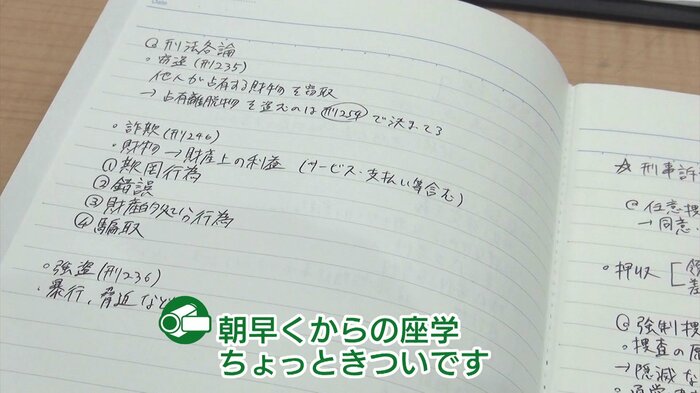 @刑法各論
・窃盗(刑235)
他人が占有する財物を窃取
→占有離脱物を盗むのは刑254で決まってる
・詐欺(刑246)
・財物→財産上の利益(サービス・支払い等含む)
①欺罔行為
②錯誤
③財産的処分行為
④騙取
・強盗(刑236)
・暴行、脅迫など
☆刑事訴
@任意捜
→同意・
・押収[領
差
@強制捜
・捜査の原
→隠滅な
朝早くからの座学
ちょっときついです